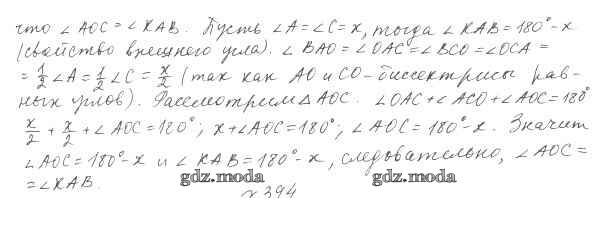 что ∠AOC = ∠KAB. Пусть ∠A = ∠C = x, тогда ∠KAB = 180° - x
(свойство внешнего угла). ∠BAO = ∠OAC = ∠BCO = ∠OCA =
= 1/2 ∠A = 1/2 ∠C = x/2 (так как AO и CO - биссектрисы рав-
ных углов). Рассмотрим △AOC. ∠OAC + ∠ACO + ∠AOC = 180°
x/2 + x/2 + ∠AOC = 180°; x + ∠AOC = 180°; ∠AOC = 180° - x. Значит
∠AOC = 180° - x и ∠KAB = 180° - x, следовательно, ∠AOC =
= ∠KAB.
gdz.moda gdz.moda
№ 394